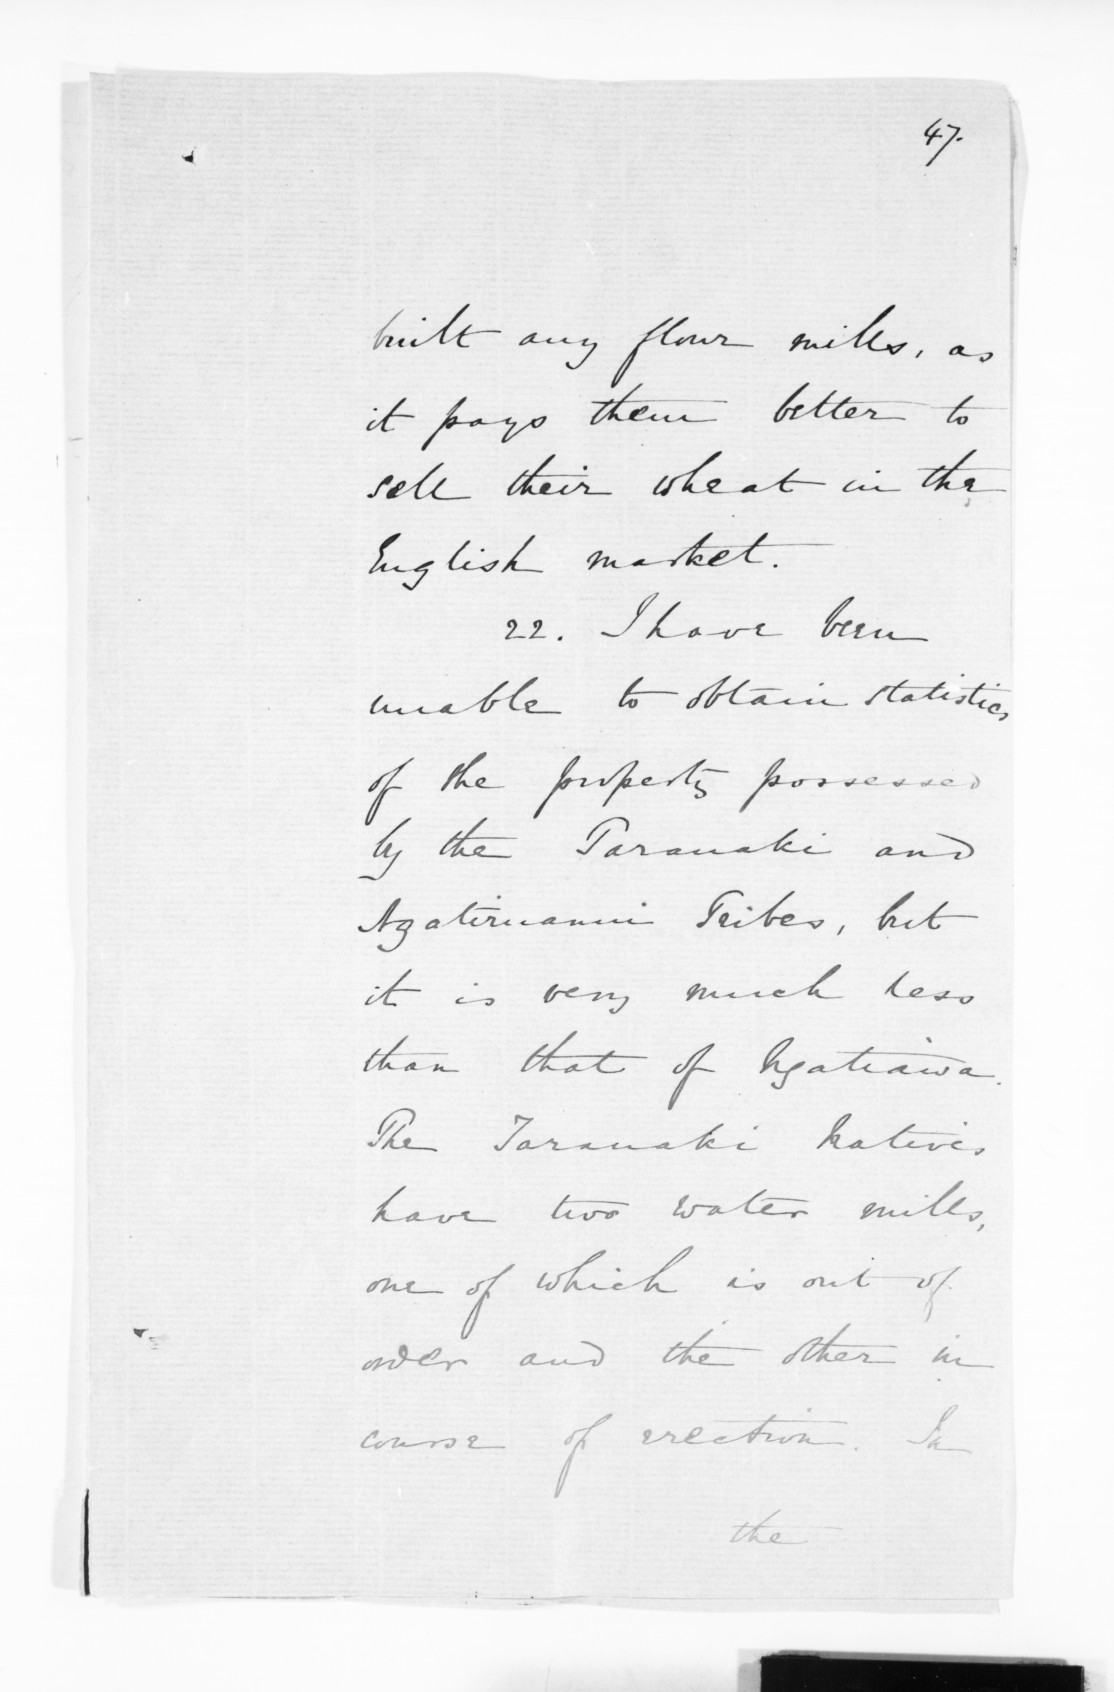 47.
built any flour mills, as
it pays them better to
sell their wheat in the
English market.
22. I have been
unable to obtain statistics
of the property possessed
by the Taranaki and
Ngatiruanui Tribes, but
it is very much less
than that of Ngatiawa.
The Taranaki Natives
have two water mills,
one of which is out of
order and the other in
course of erection. In
the